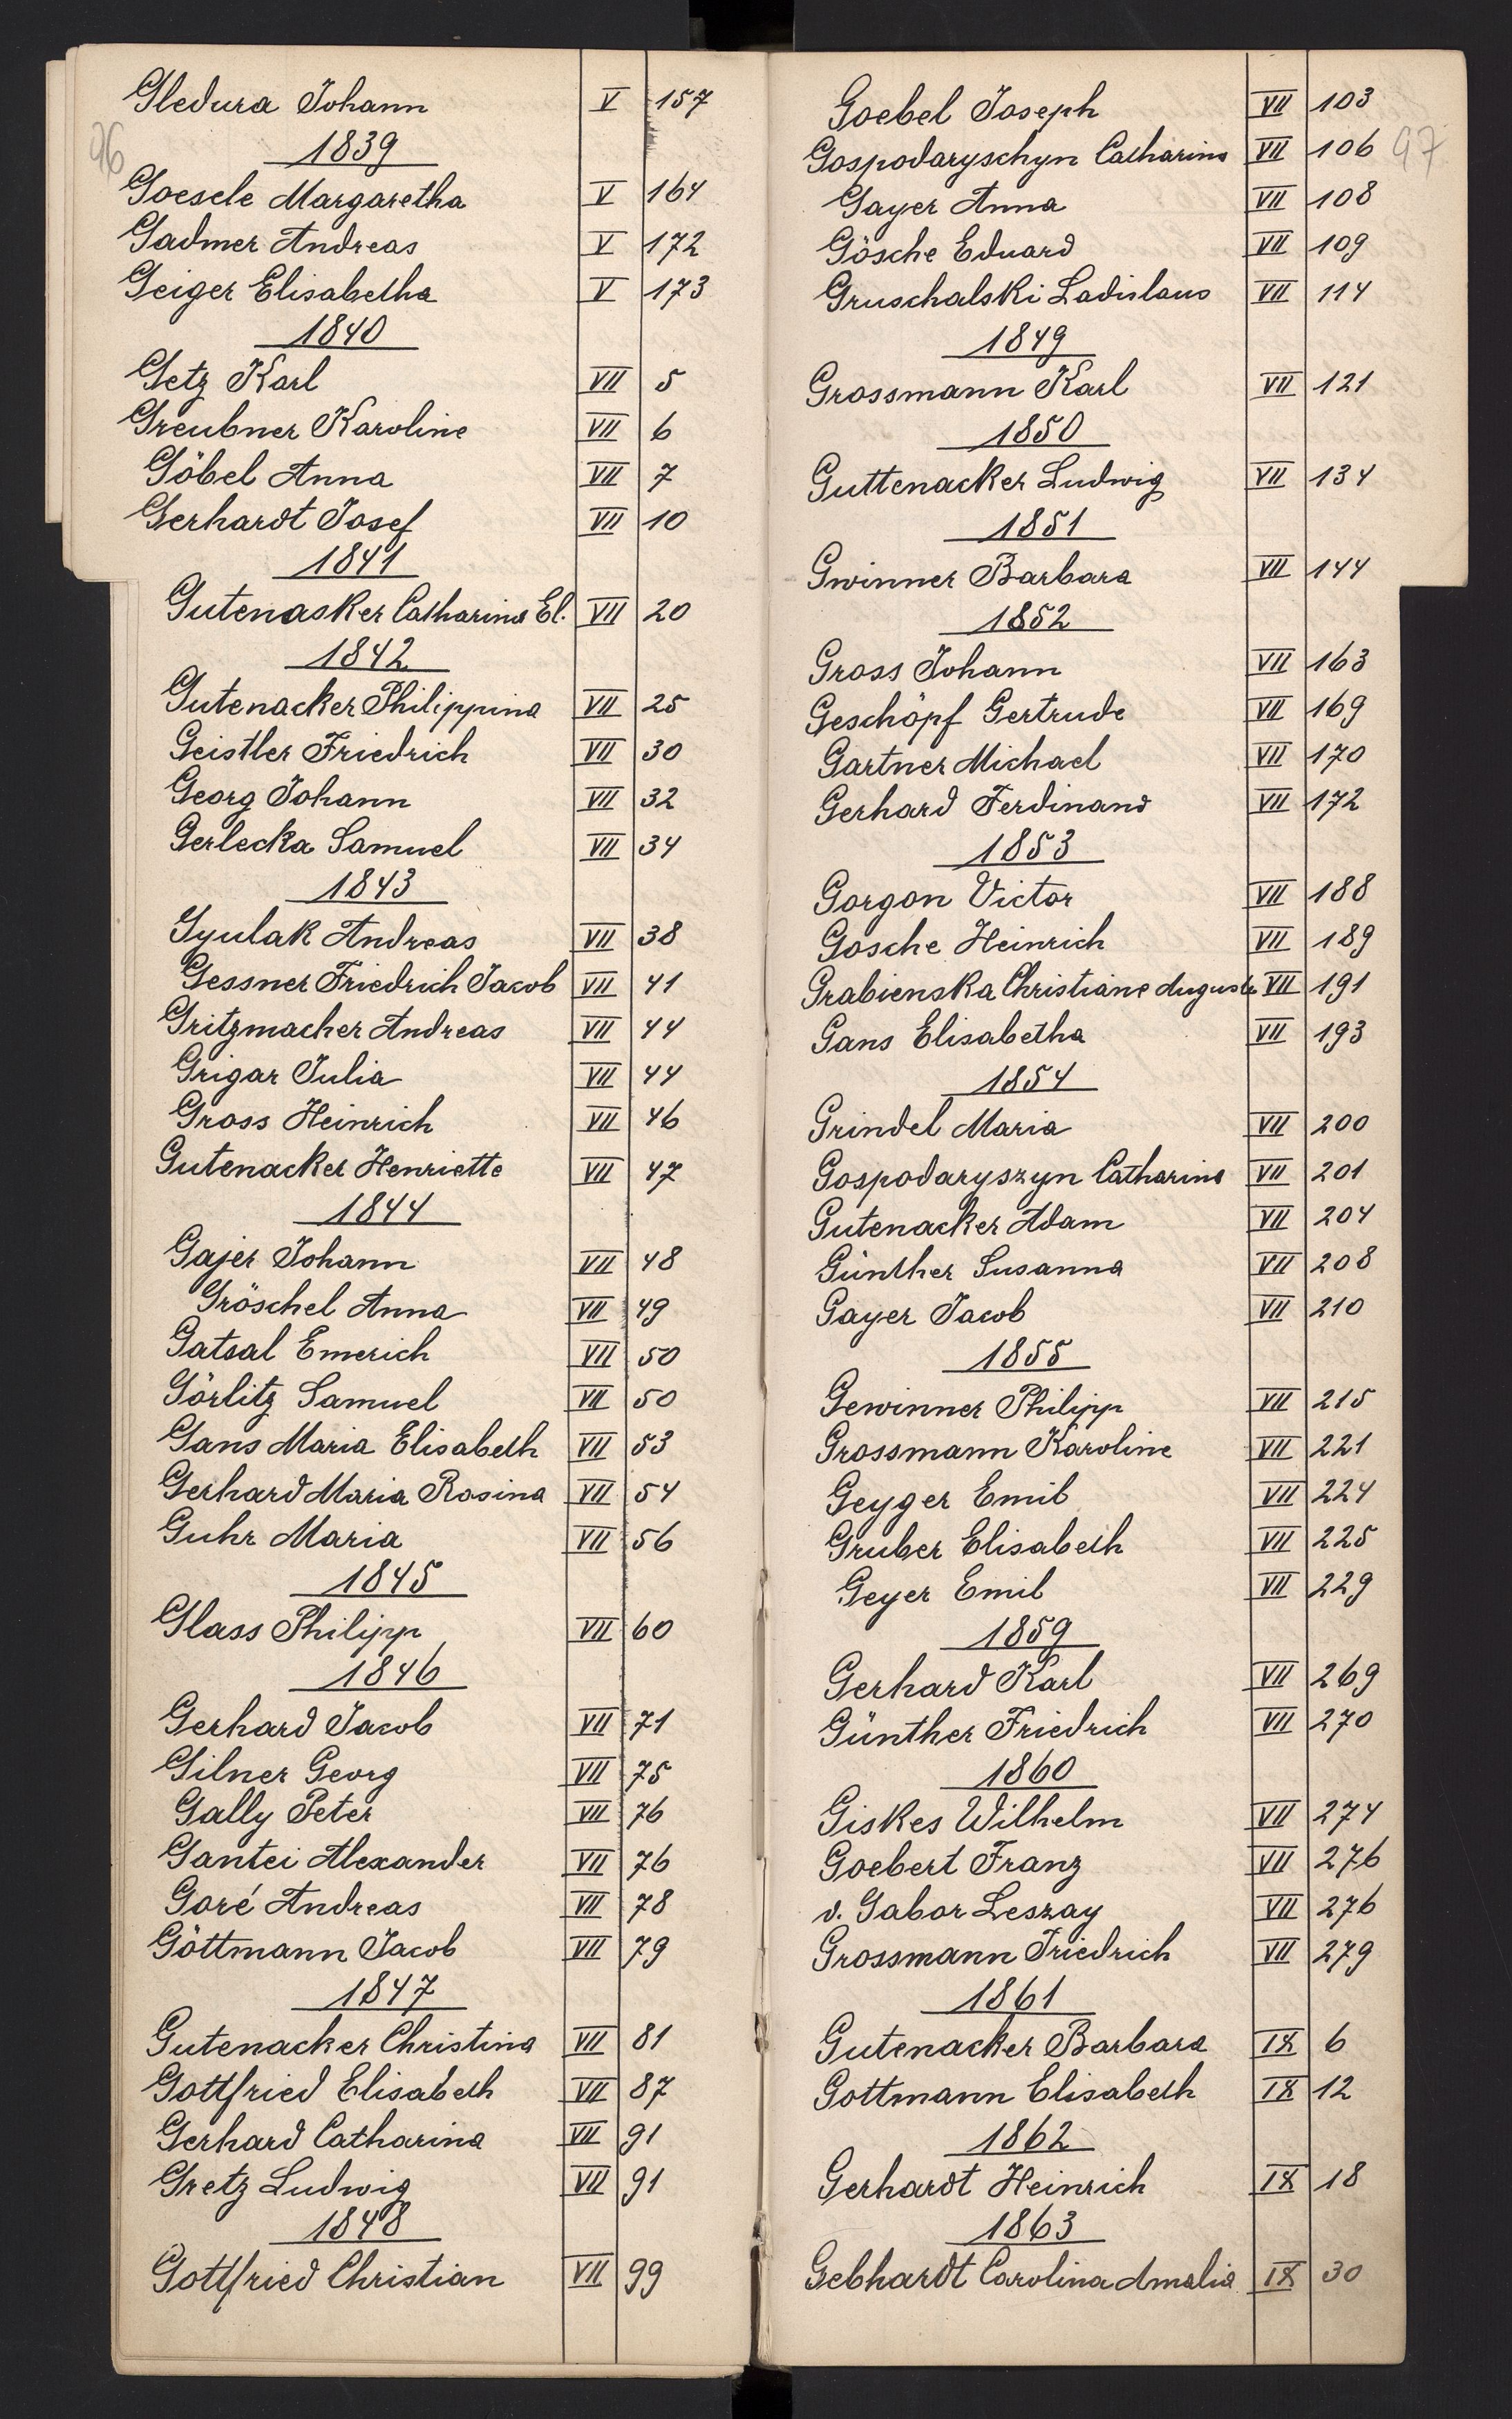 96
Gledura Johann V 157
1839
Goesele Margaretha V 164
Gadmer Andreas V 172
Geiger Elisabetha V 173
1840
Getz Karl VII 5
Greubner Karoline VII 6
Göbel Anna VII 7
Gerhardt Josef VII 10
1841
Gutenasker Catharina El. VII 20
1842
Gutenacker Philippina VII 25
Geistler Friedrich VII 30
Georg Johann VII 32
Gerlecka Samuel VII 34
1843
Gyulak Andreas VII 38
Gessner Friedrich Jacob VII 41
Gritzmacher Andreas VII 44
Grigar Julia VII 44
Gross Heinrich VII 46
Gutenacker Henriette VII 47
1844
Gajer Johann VII 48
Gröschel Anna VII 49
Gatsal Emerich VII 50
Görlitz Samuel VII 50
Gans Maria Elisabeth VII 53
Gerhard Maria Rosina VII 54
Guhr Maria VII 56
1845
Glass Philipp VII 60
1846
Gerhard Jacob VII 71
Gilner Georg VII 75
Gally Peter VII 76
Gantei Alexander VII 76
Goré Andreas VII 78
Göttmann Jacob VII 79
1847
Gutenacker Christina VII 81
Gottfried Elisabeth VII 87
Gerhard Catharina VII 91
Gretz Ludwig VII 91
1848
Gottfried Christian VII 99
97
Goebel Joseph VII 103
Gospodaryschyn Catharina VII 106
Gayer Anna VII 108
Gösche Eduard VII 109
Gruschalski Ladislaus VII 114
1849
Grossmann Karl VII 121
1850
Guttenacker Ludwig VII 134
1851
Gwinner Barbara VII 144
1852
Gross Johann VII 163
Geschöpf Gertrude VII 169
Gartner Michael VII 170
Gerhard Ferdinand VII 172
1853
Gorgon Victor VII 188
Gosche Heinrich VII 189
Grabienska Christiane Auguste VII 191
Gans Elisabetha VII 193
1854
Grindel Maria VII 200
Gospodaryszyn Catharina VII 201
Gutenacker Adam VII 204
Günther Susanna VII 208
Gayer Jacob VII 210
1855
Gewinner Philipp VII 215
Grossmann Karoline VII 221
Geyger Emil VII 224
Gruber Elisabeth VII 225
Geyer Emil VII 229
1859
Gerhard Karl VII 269
Günther Friedrich VII 270
1860
Giskes Wilhelm VII 274
Goebert Franz VII 276
v. Gabor Leszay VII 276
Grossmann Friedrich VII 279
1861
Gutenacker Barbara IX 6
Gottmann Elisabeth IX 12
1862
Gerhardt Heinrich IX 18
1863
Gebhardt Carolina Amalia IX 30